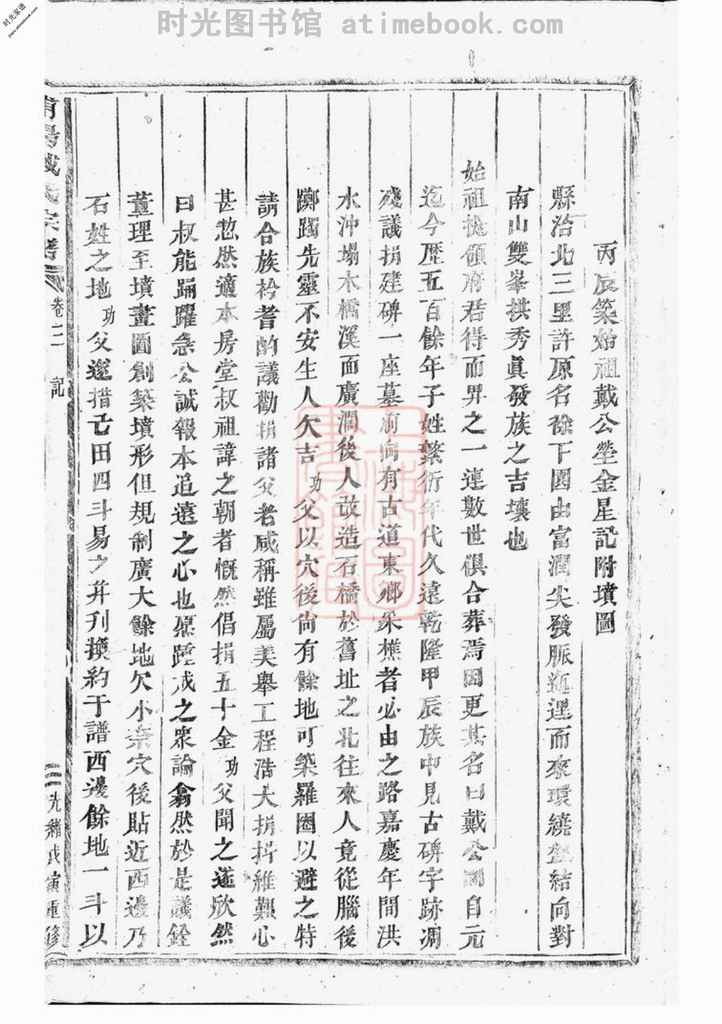 时光图书馆 atimebook.com
时光家谱
www.atimebook.com
丙辰築始祖戴公塋金星記附墳圖
縣治北三里許原名徐下園由富潤尖發脈迤邐而來環繞盤結向對
南山雙峯拱秀眞發族之吉壤也
始祖機領府君得而昇之一連數世俱合葬焉因更其名曰戴公園自元
迄今歷五百餘年子姓繁衍年代久遠乾隆甲辰族中見古碑字跡凋
殘議捐建碑一座墓前向有古道東鄉采樵者必由之路嘉慶年間洪
水沖塌木橋溪面廣濶後人改造石橋於舊址之北往來人竟從腦後
躑躅先靈不安生人欠吉功父以穴後尚有餘地可築羅圈以避之特
請合族衿耆酌議勸捐諸父老咸稱雖屬美舉工程浩大捐抖維艱心
甚愁然適本房堂叔祖諱之朝者慨然倡捐五十金功父聞之遂欣然
曰叔能踊躍急公誠報本追遠之心也愿踵成之衆論翕然於是議銓
董理至墳畫圖創築墳形但規制廣大餘地欠小奈穴後貼近西邊乃
石姓之地功父邀措亡田四斗易之幷刋撥約于譜西邊餘地一斗以
戴氏宗譜
卷二
記
二
光緒戊寅重修